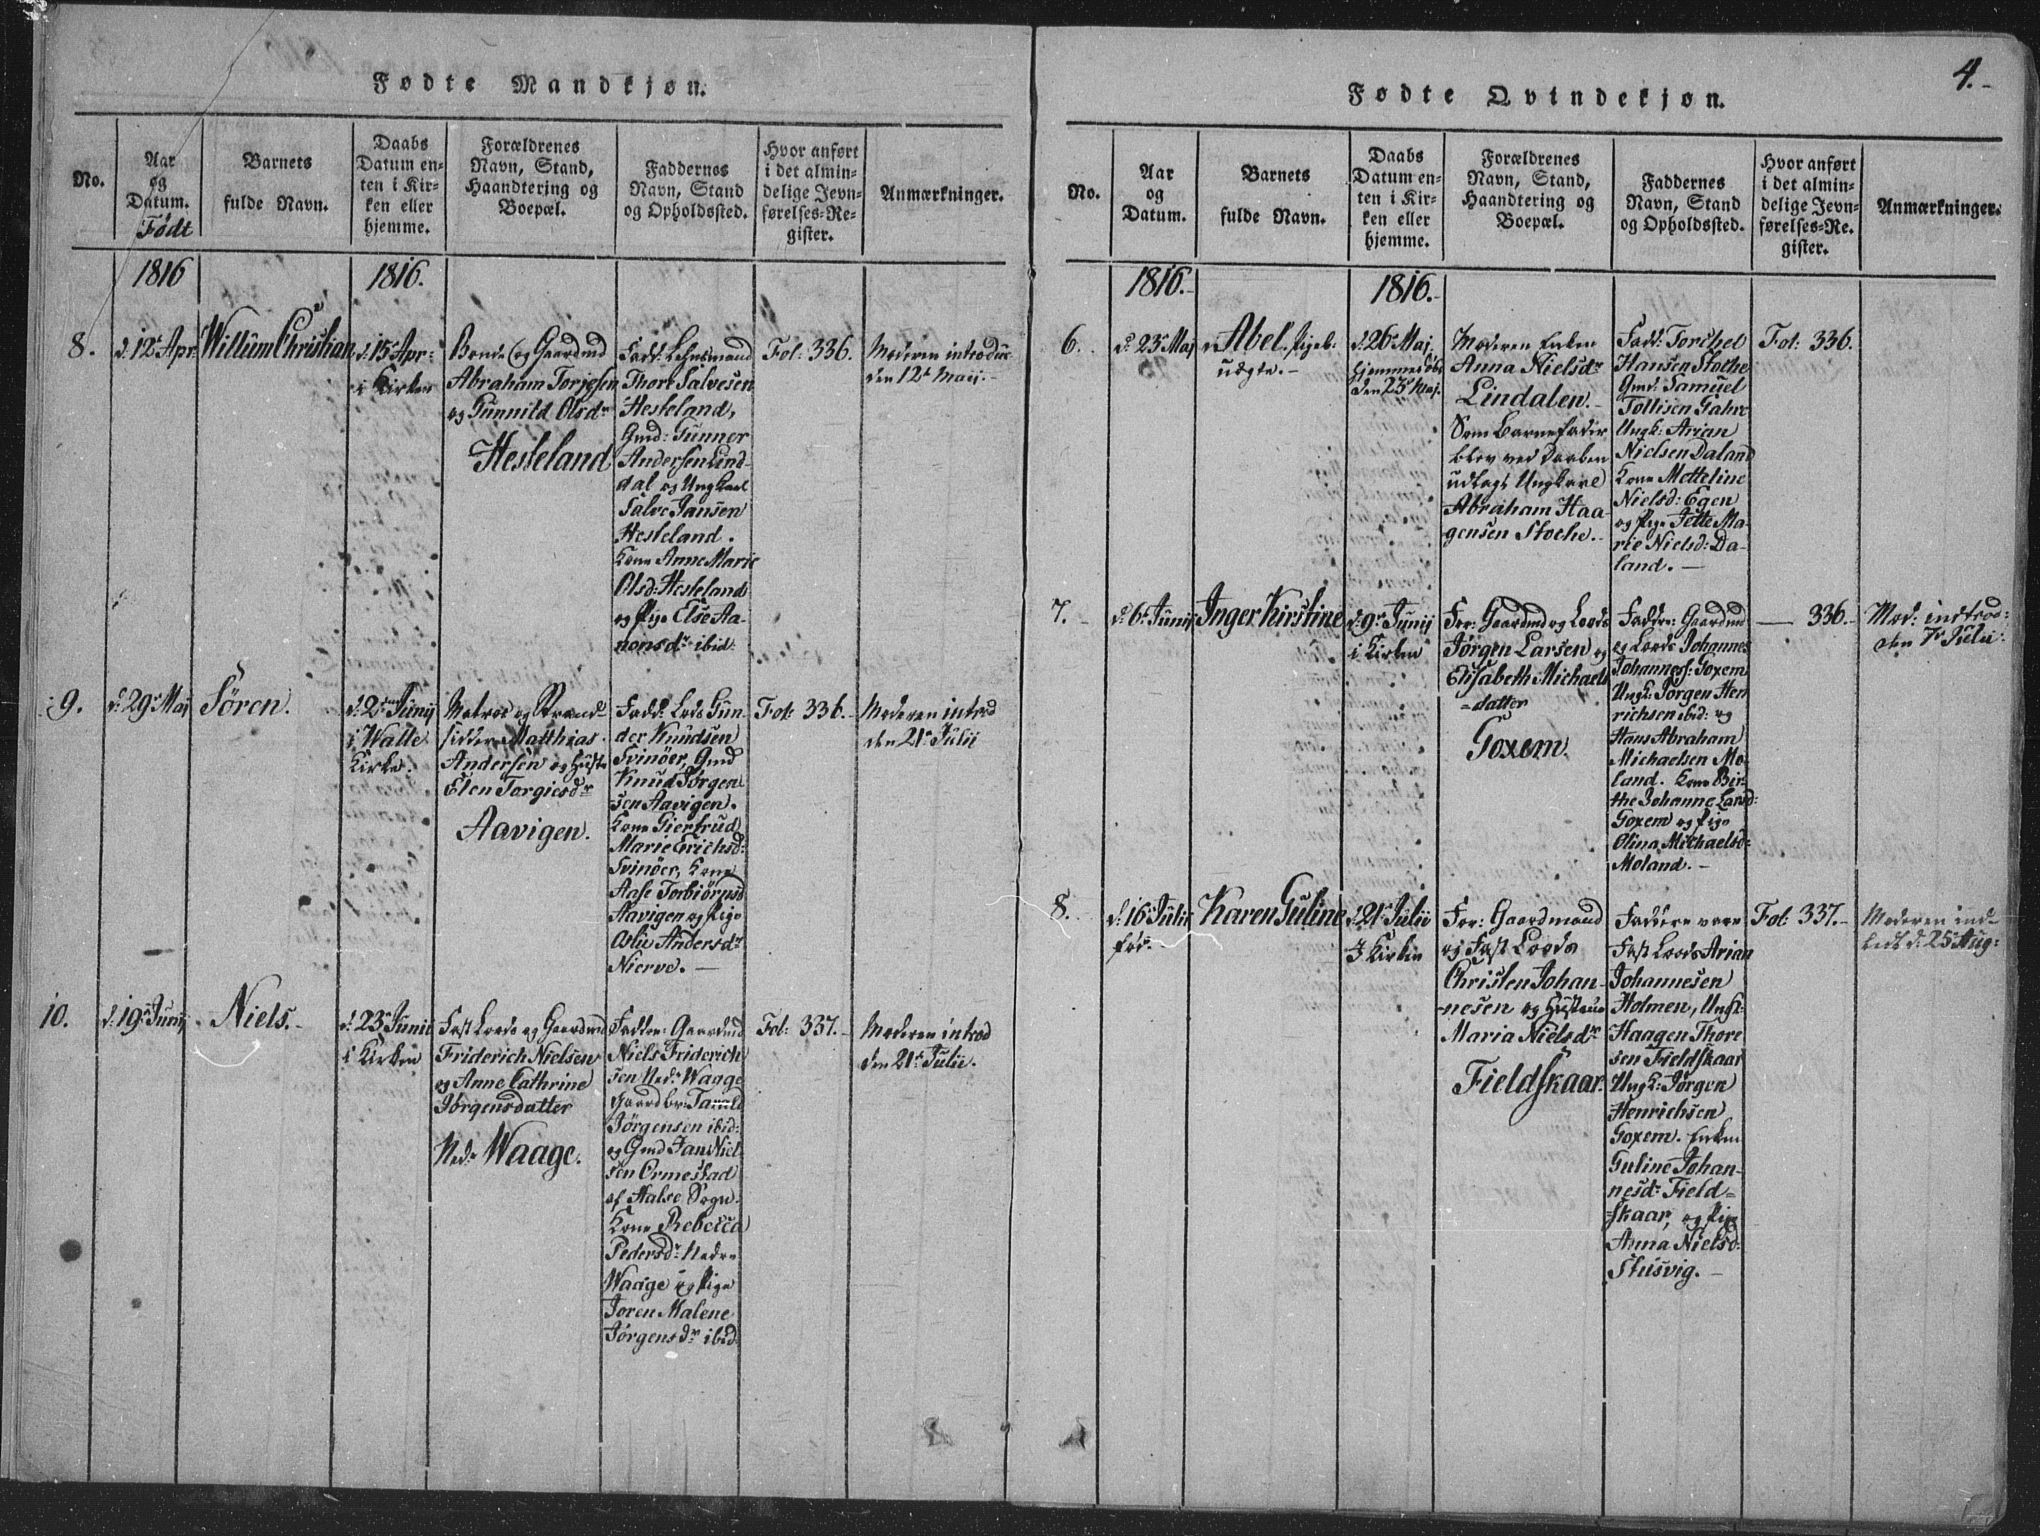 Fødte Mandkjøn.
No.
Aar
og
Datum.
Født
Barnets
fulde Navn.
Daabs
Datum en-
ten i Kir-
ken eller
hjemme.
Forældrenes
Navn, Stand,
Haandtering og
Boepæl.
Faddernes
Navn, Stand
og Opholdssted.
Hvor anført
i det almin-
delige Jevn-
førelses-Re-
gister.
Anmærkninger.
1816
1816.
8.
d. 12t Apr
Willum Christian
d. 15t Apr:
i Kirken
Bonde og Gaardmd
Abraham Torjesen
og Gunnild Olsdr
Hesteland
Fadd: Lehnsmand
Thore Salvesen
Hesteland,
Gmd: Gunner
Andersen Lind-
dal og Ungkarl
Salve Jansen
Hesteland.
Kone Anne Marie
Olsd: Hesteland
og Pige Else Aa-
nonsdr ibid:
Fol: 336.
Moderen introdus
den 12t Maii.-
9.
d. 29t Maj
Søren.
d. 2den Junij
i Walle
Kirke.
Matros og Strand-
sidder Matthias
Andersen og Hustr
Elen Torgiesdr
Aavigen.
Fadd: Lods Gun-
der Knudsen
Svinøer, Gmd
Knud Jørgen-
sen Aavigen.
Kone Giertrud
Marie Erichsd:
Svinøer, Kone
Aase Torbiørnsd
Aavigen og Pige
Aslie Andersdr
Nierve.-
Fol: 336.-
Moderen introd
den 21t Julii
10.
d. 19t Junij
Niels.-
d: 23t Junii
i Kirken
Fast Loods og Gaardmd
Friderich Nielsen
og Anne Cathrine
Jørgensdatter
Nedr Waage.
Faddre: Gaardmd
Niels Friderich
sen Nedr Waage
Gaardbr: Tarald
Jørgensen ibid:
og Gmd Jan Niel-
sen Ormestad
af Halse Sogn.
Kone Rebecca
Pedersdr Nedre
Waage og Pige
Joren Malene
Jørgensdr ibid:
Fol: 337.-
Moderen introd
den 21t Julii.
4.-
Fødte Qvindekjøn.
No.
Aar
og
Datum.
Barnets
fulde Navn.
Daabs
Datum en-
ten i Kir-
ken eller
hjemme.
Forældrenes
Navn, Stand,
Haandtering og
Boepæl.
Faddernes
Navn, Stand
og Opholdssted.
Hvor anført
i det almin-
delige Jevn-
førelses-Re-
gister.
Anmærkninger.
1816.-
1816.-
6.
d. 23t Maj
Abel. Pigeb:
uægte.-
d. 26t Maj,
Hjemmedøbt
den 23t Maj.
Moderen Enken
Anna Nielsdr
Lindalen.-
Som Barnefader
blev ved Daaben
udlagt Ungkarl
Abraham Haa-
gensen Stoche.-
Fadd: Torchel
Hansen Stoche
Gmd: Samuel
Tollisen Gahre
Ungk: Arian
Nielsen Daland
Kone Metteline
Nielsd: Egen
og Pige Jette Ma-
rie Nielsd: Da-
land.-
Fol: 336.
7.-
d. 6t Junij
Inger Kirstine
d. 9t Junij
i Kirken
For: Gaardmd og Loods
Jørgen Larsen og
Elisabeth Michaels
-datter
Goxem.
Faddre: Gaardmd
og Loods Johannes
Johanness: Goxem
Ungk: Jørgen Hen
richsen ibid: og
Hans Abraham
Michaelsen Mo-
land. Kone Bir-
the Johanne Larsd:
Goxem og Pige
Olina Michaelsd:
Moland.-
— 336.-
Mod: introd:
den 7t Julii.
8.
d. 16t Julii
fød.
Karen Guline
d. 21t Julii
I Kirken
For: Gaardmand
og Fast Loods
Christen Johan-
-nesen og Hustrue
Maria Nielsdr
Fieldskaar.
Faddere vare
Fast Loods Arian
Johannesen
Holmen, Ungk:
Haagen Thore
sen Fieldskaar
Ungk: Jørgen
Henrichsen
Goxem. Enken
Guline Johan-
nesd: Field-
skaar, og Pige
Anna Nielsd:
Stusvig.-
Fol: 337.-
Moderen ind-
ledt d. 25t Aug: